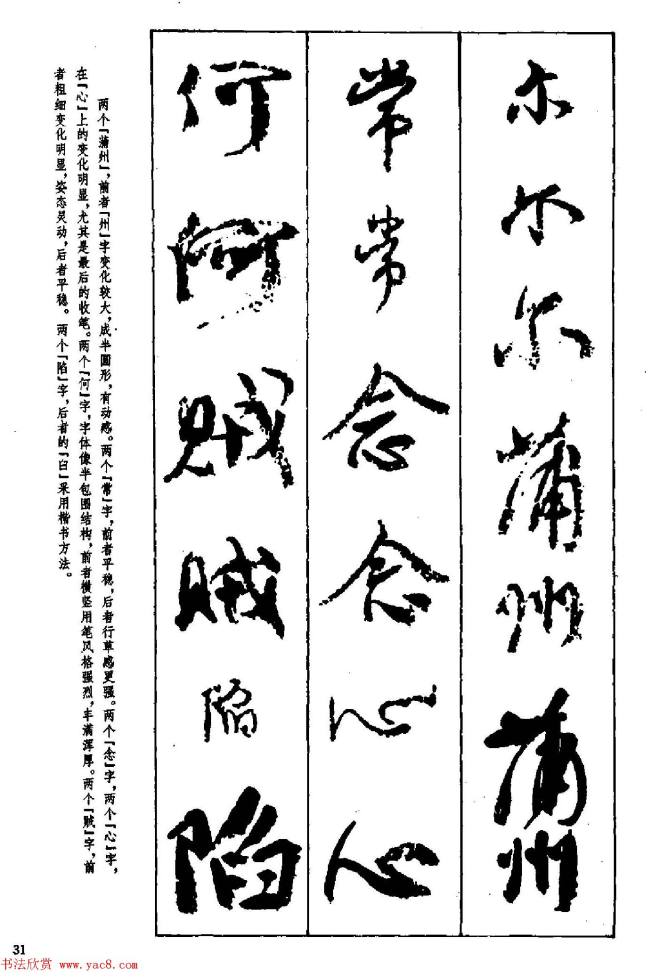 尔尔尔蒲州蒲州
常常念念心心
何何贼贼陷陷
两个「蒲州」,前者「州」字变化较大,成半圆形,有动感。两个「常」字,前者平稳,后者行草感更强。两个「念」字,两个「心」字,
在「心」上的变化明显,尤其是最后的收笔。两个「何」字,字体像半包围结构,前者横竖用笔风格强烈,丰满浑厚。两个「贼」字,前
者粗细变化明显,姿态灵动,后者平稳。两个「陷」字,后者的「臼」采用楷书方法。
31
书法欣赏 www.yac8.com